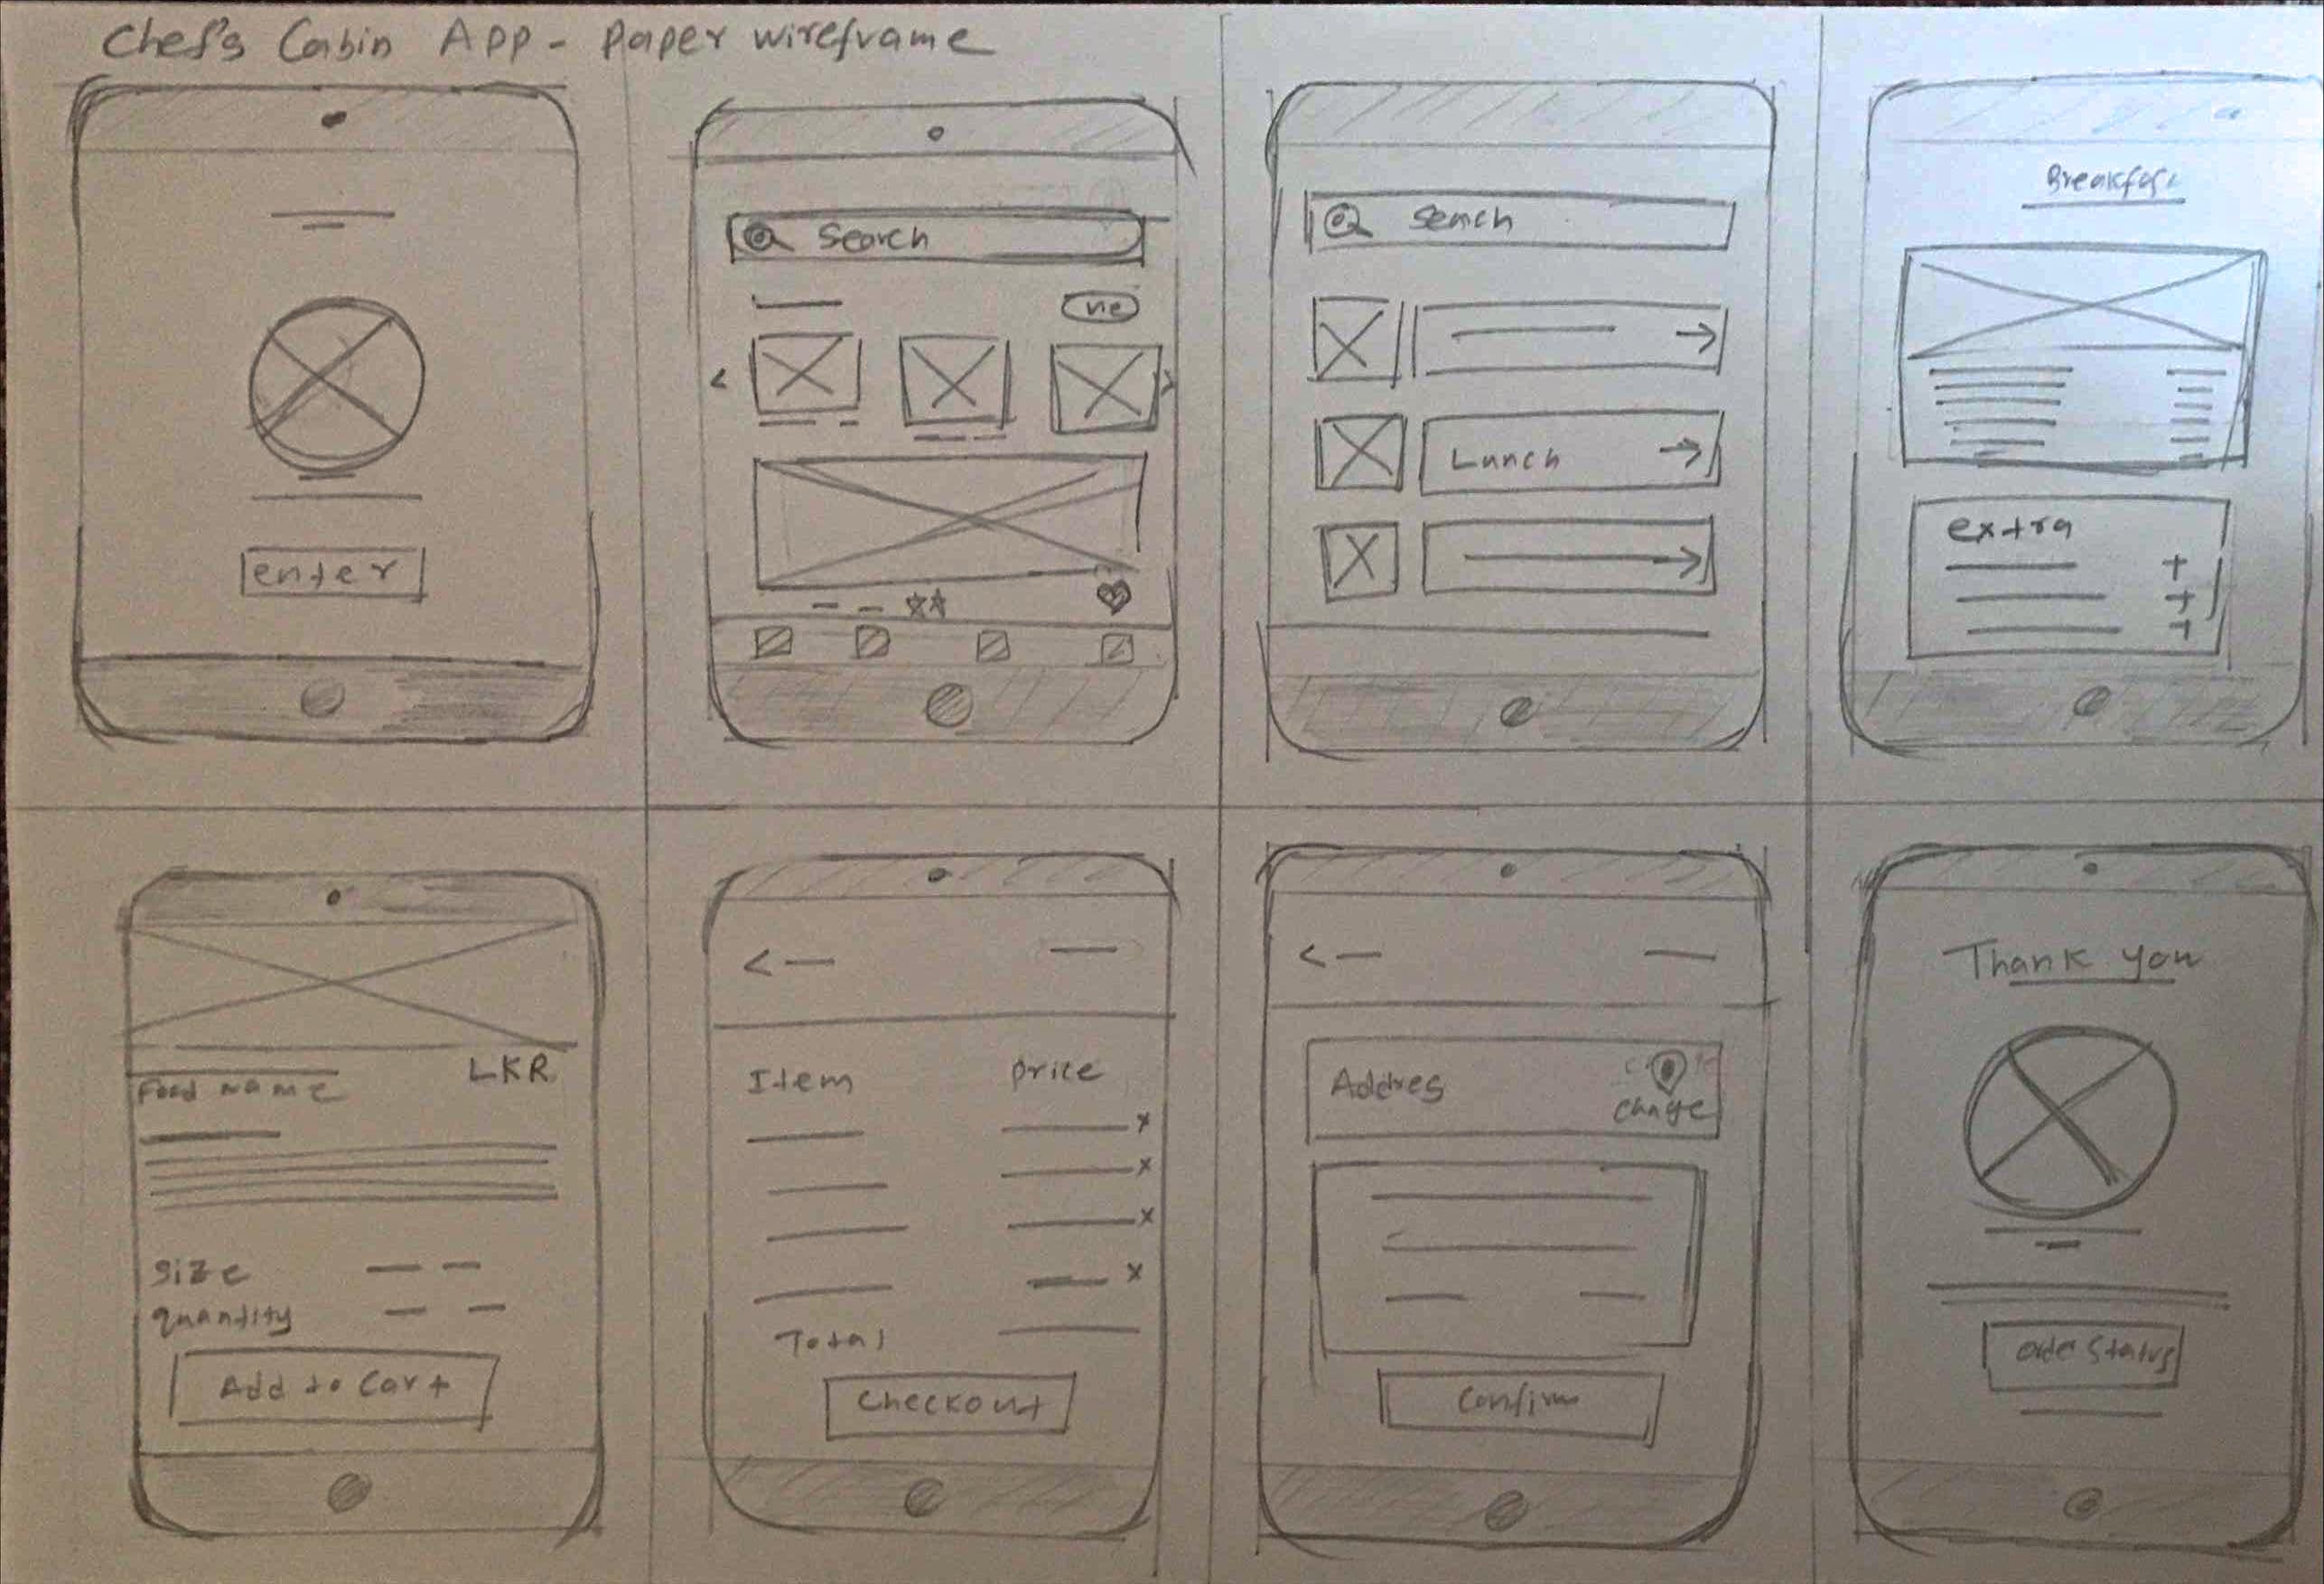 Chef's Cabin App - Paper wireframe
enter
Search
Search
Lunch
Breakfast
extra
Food name
LKR
Size
quantity
Add to Cart
Item price
Total
Checkout
Addres
change
Confirm
Thank you